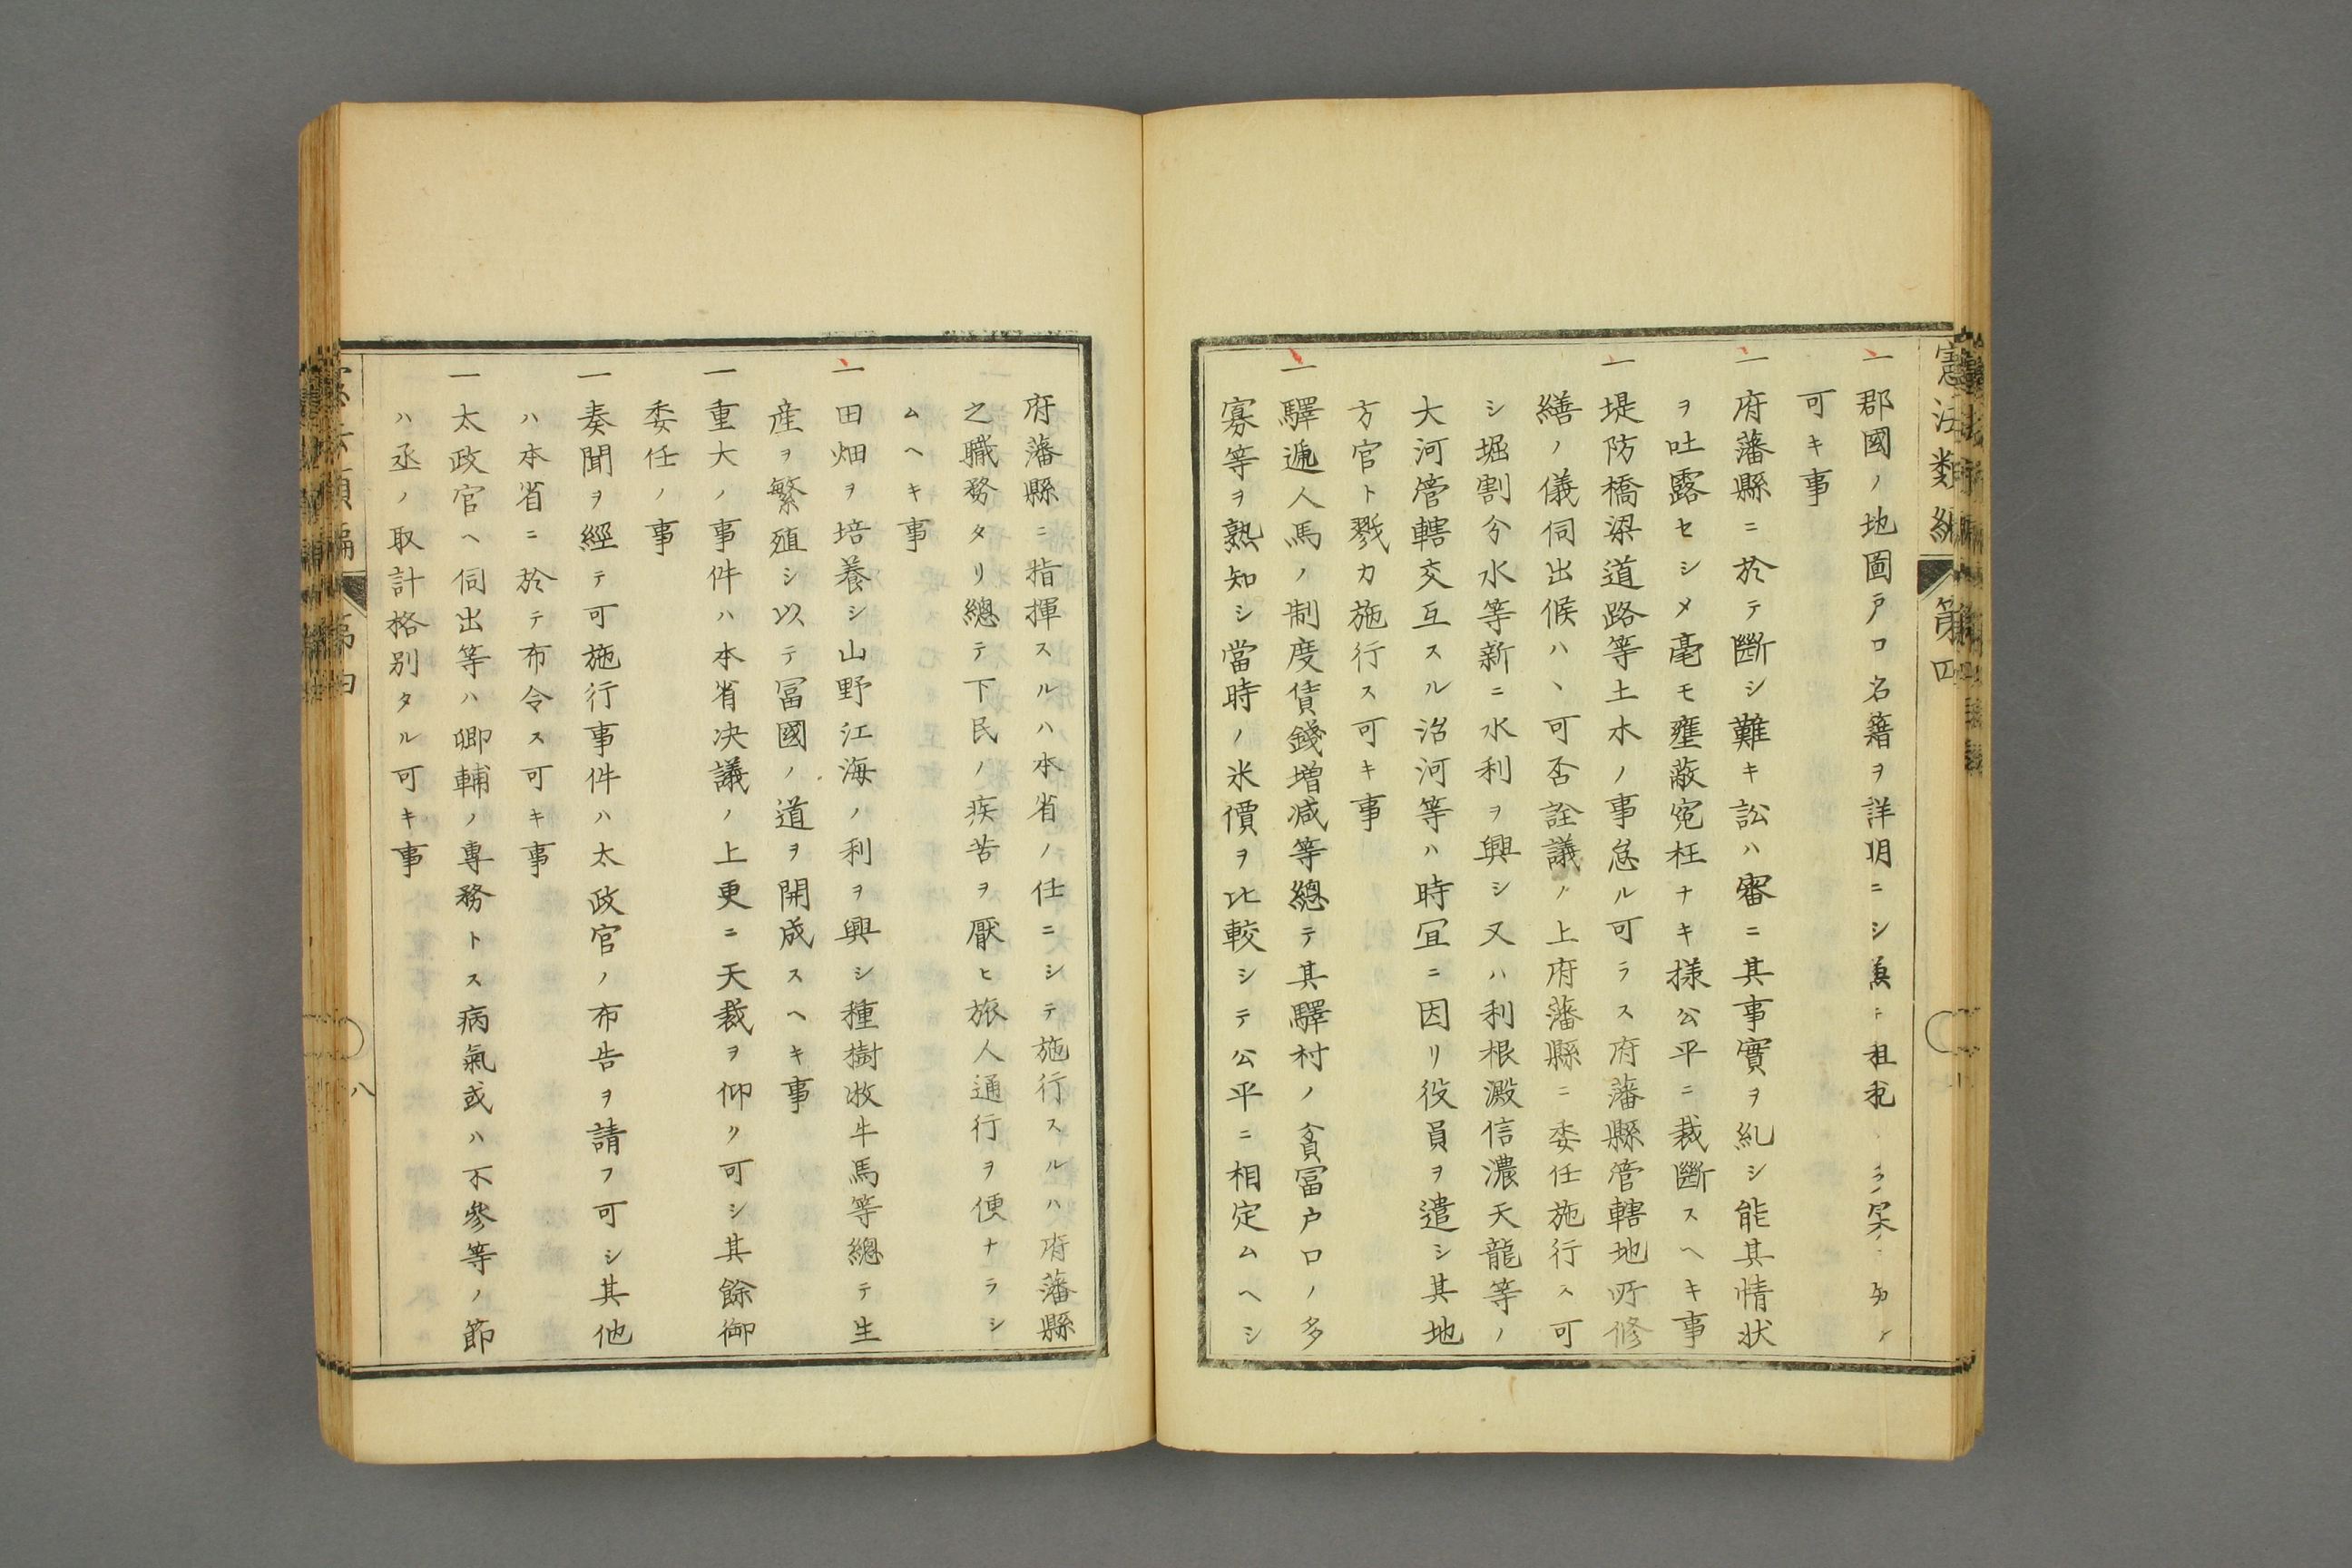 憲法類編 第四
一 郡國ノ地圖戸口名籍ヲ詳明ニシ兼テ租税
可キ事
一 府藩縣ニ於テ斷シ難キ訟ハ審ニ其事實ヲ糺シ能其情状
ヲ吐露セシメ毫モ壅蔽寃枉ナキ様公平ニ裁斷スヘキ事
一 堤防橋梁道路等土木ノ事怠ル可ラス府藩縣管轄地所修
繕ノ儀伺出候ハヽ可否詮議ノ上府藩縣ニ委任施行ス可
シ堀割分水等新ニ水利ヲ興シ又ハ利根澱信濃天龍等ノ
大河管轄交互スル沿河等ハ時宜ニ因リ役員ヲ遣シ其地
方官ト戮力施行ス可キ事
一 驛遞人馬ノ制度賃錢増减等總テ其驛村ノ貧冨戸口ノ多
寡等ヲ熟知シ當時ノ米價ヲ比較シテ公平ニ相定ムヘシ
府藩縣ニ指揮スルハ本省ノ任ニシテ施行スルハ府藩縣
之職務タリ總テ下民ノ疾苦ヲ厭ヒ旅人通行ヲ便ナラシ
ムヘキ事
一 田畑ヲ培養シ山野江海ノ利ヲ興シ種樹牧牛馬等總テ生
産ヲ繁殖シ以テ冨國ノ道ヲ開成スヘキ事
一 重大ノ事件ハ本省决議ノ上更ニ天裁ヲ仰ク可シ其餘御
委任ノ事
一 奏聞ヲ經テ可施行事件ハ太政官ノ布告ヲ請フ可シ其他
ハ本省ニ於テ布令ス可キ事
一 太政官ヘ伺出等ハ卿輔ノ專務トス病氣或ハ不參等ノ節
ハ丞ノ取計格別タル可キ事
八